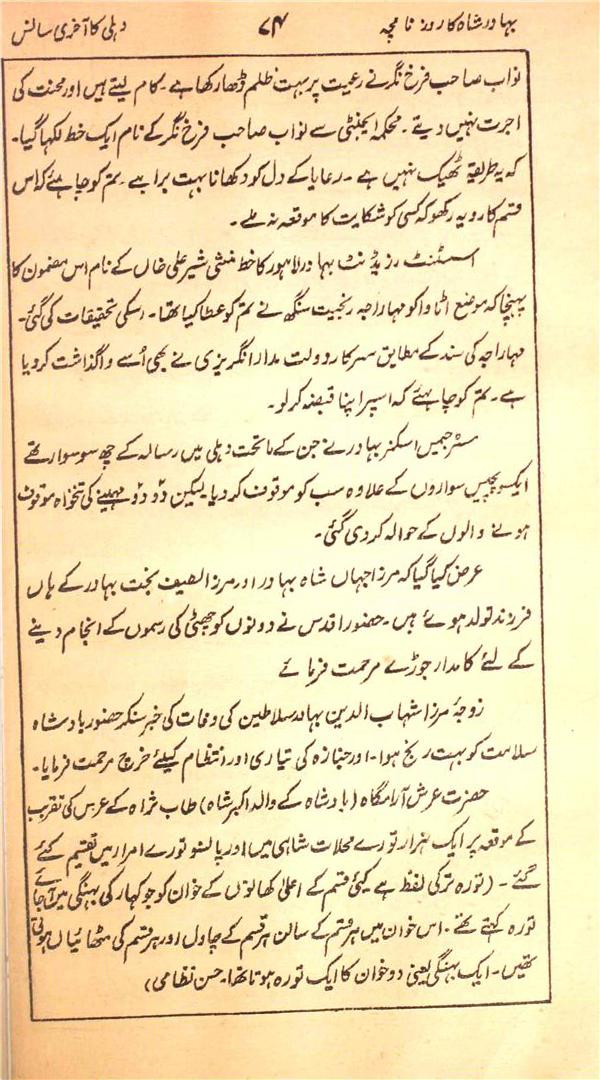 بہادر شاہ کا روز نامچہ
۷۴
دہلی کا آخری سانس
نواب صاحب فرخ نگر نے رعیت پر بہت ظلم ڈھا رکھا ہے۔ کام لیتے ہیں اور محنت کی
اجرت نہیں دیتے۔ محکمہ ایجنٹی سے نواب صاحب فرخ نگر کے نام ایک خط لکھا گیا۔
کہ یہ طریقہ ٹھیک نہیں ہے۔ رعایا کے دل کو دکھانا بہت برا ہے۔ تم کو چاہئے کہ اس
قسم کا رویہ رکھو کہ کسی کو شکایت کا موقعہ نہ ملے۔
اسسٹنٹ رزیڈنٹ بہادر لاہور کا خط منشی شیر علی خاں کے نام اس مضمون کا
پہنچا کہ موضع اٹاوا کو مہاراجہ رنجیت سنگھ نے تم کو عطا کیا تھا۔ اسکی تحقیقات کی گئی۔
مہاراجہ کی سند کے مطابق سرکار دولت مدار انگریزی نے بھی اُسے واگذاشت کر دیا
ہے۔ تم کو چاہئے کہ اسپر اپنا قبضہ کر لو۔
مسٹر جمیس اسکنر بہادر نے جن کے ماتحت دہلی میں رسالہ کے چھ سو سوار تھے
ایکسو پچیس سواروں کے علاوہ سب کو موقوف کر دیا لیکن دو دو مہینے کی تنخواہ موقوف
ہونے والوں کے حوالہ کر دی گئی۔
عرض کیا گیا کہ مرزا جہاں شاہ بہادر اور مرزا الصیف بخت بہادر کے ہاں
فرزند تولد ہوئے ہیں۔ حضور اقدس نے دونوں کو چھٹی کی رسموں کے انجام دینے
کے لئے کامدار جوڑے مرحمت فرمائے
زوجۂ مرزا شہاب الدین بہادر سلاطین کی وفات کی خبر سنکر حضور بادشاہ
سلامت کو بہت رنج ہوا۔ اور جنازہ کی تیاری اور انتظام کیلئے خرچ مرحمت فرمایا۔
حضرت عرش آرامگاہ (بادشاہ کے والد اکبر شاہ) طاب ثراہ کے عرس کی تقریب
کے موقعہ پر ایک ہزار تورے محلات شاہی میں اور پانسو تورے امرار میں تقسیم کئے
گئے۔ (تورہ ترکی لفظ ہے کئی قسم کے اعلیٰ کھانوں کے خوان کو جو کہار کی بہنگی میں آجائے
تورہ کہتے تھے۔ اس خوان میں ہر قسم کے سالن ہر قسم کے چاول اور ہر قسم کی مٹھائیاں ہوتی
تھیں۔ ایک بہنگی یعنی دو خوان کا ایک تورہ ہوتا تھا۔ حسن نظامی)